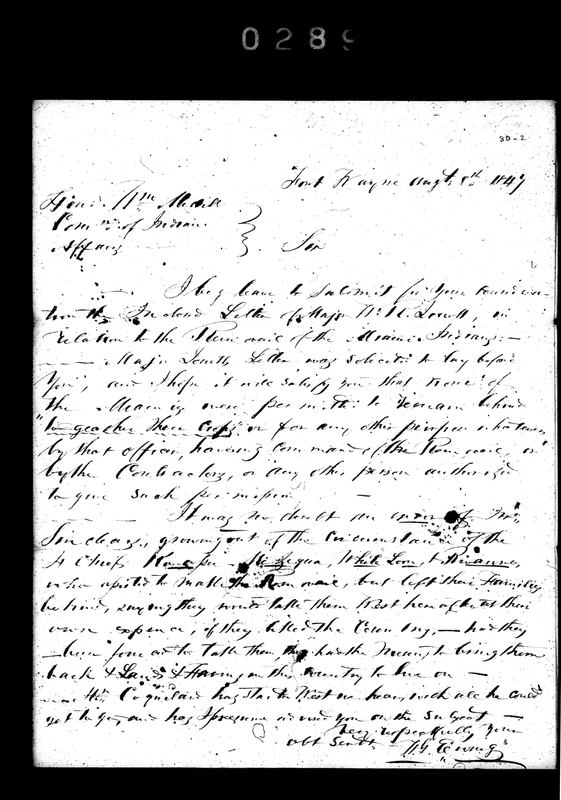 0289
30-2
Fort Wayne Augt. 8th 1847
Hon. Wm Medill
Comr. of Indian
Affairs
Sir
I beg leave to submit for your
tion the Inclosed Letter of Major in
relation to the Removal of the Miamie Indians;—
Major Letter, was solicited to lay before
You, and I hope it will satisfy you that none of
the Miamies were permitted to remain behind
"to geather there Crops" or for any other purpose whatever
by that officer, having command of the Removal, or
by the Contractors, or any other person authorized
to give such permission —
It was no doubt an error of
Sinclears, growing out of the circumstance of the
4 Chiefs White Loon, &
who assisted to make the Removal, but left their Families
behind, saying they would take them West hereafter at their
own expence, if they liked the Country, — had they
been forced to take them, they had the means to bring them
back & Lands & Farms in this country to live on —
Mr. Coquilard has started West we hear, with all he could
get to go, and has I presume advised you on the subject —
Very respectfully Your
obt Servt. W. G. Ewing